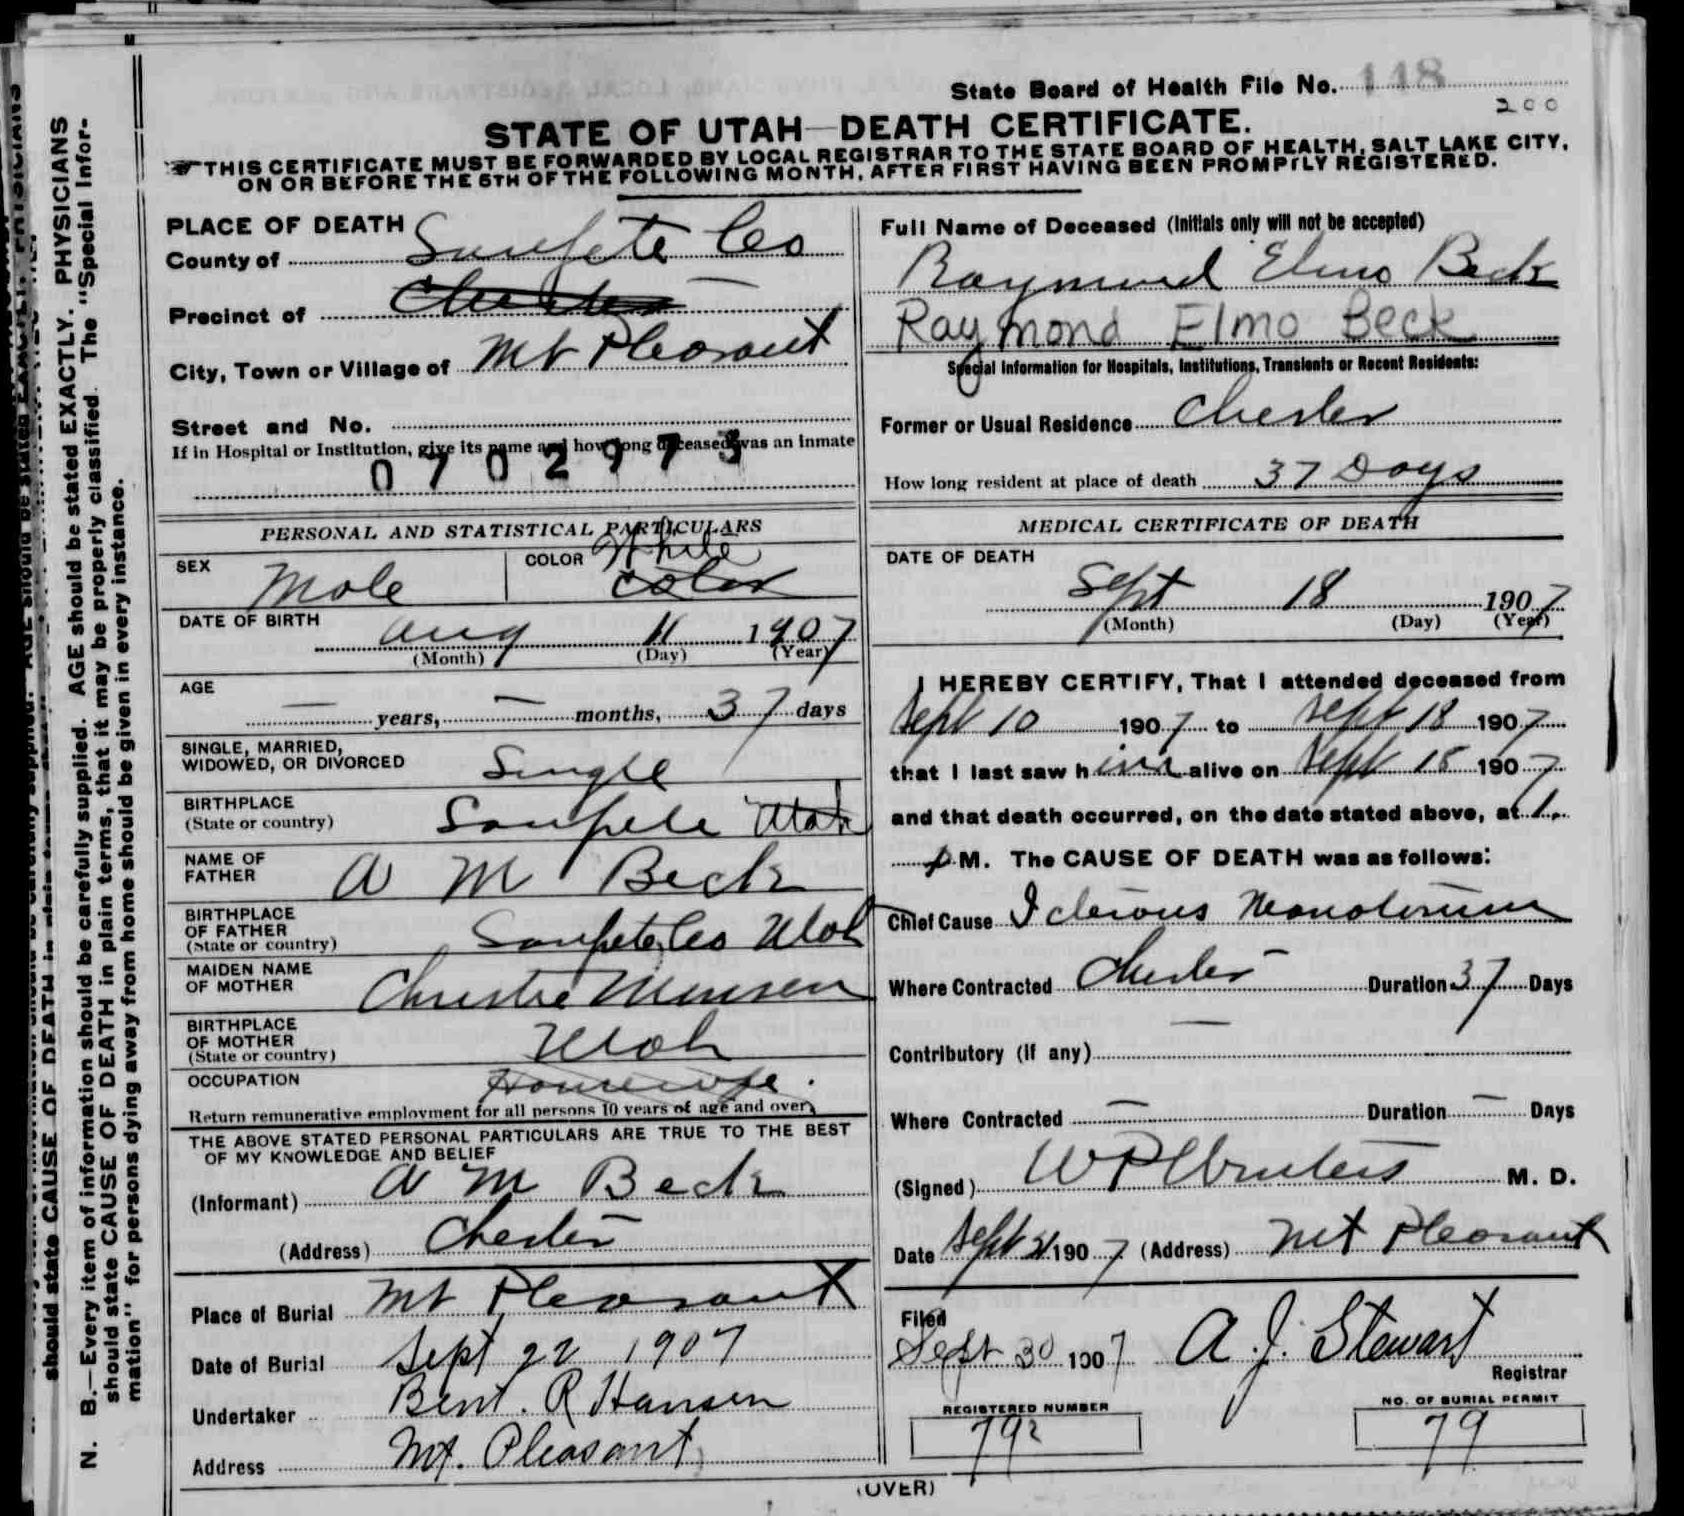 State Board of Health File No. 148
200
STATE OF UTAH—DEATH CERTIFICATE.
THIS CERTIFICATE MUST BE FORWARDED BY LOCAL REGISTRAR TO THE STATE BOARD OF HEALTH, SALT LAKE CITY,
ON OR BEFORE THE 5TH OF THE FOLLOWING MONTH, AFTER FIRST HAVING BEEN PROMPTLY REGISTERED.
N. B.—Every item of information should be carefully supplied. AGE should be stated EXACTLY. PHYSICIANS
should state CAUSE OF DEATH in plain terms, that it may be properly classified. The "Special Infor-
mation" for persons dying away from home should be given in every instance.
PLACE OF DEATH
County of Sanpete Co
Precinct of Chester
City, Town or Village of Mt Pleasant
Street and No.
If in Hospital or Institution, give its name and how long deceased was an inmate
0702973
Full Name of Deceased (Initials only will not be accepted)
Raymond Elmo Beck
Raymond Elmo Beck
Special Information for Hospitals, Institutions, Transients or Recent Residents:
Former or Usual Residence Chester
How long resident at place of death 37 Days
PERSONAL AND STATISTICAL PARTICULARS
SEX Male
COLOR White
color
DATE OF BIRTH
Aug 11 1907
(Month) (Day) (Year)
AGE
— years, — months, 37 days
SINGLE, MARRIED,
WIDOWED, OR DIVORCED Single
BIRTHPLACE
(State or country) Sanpete Utah
NAME OF
FATHER A M Beck
BIRTHPLACE
OF FATHER
(State or country) Sanpete Co Utah
MAIDEN NAME
OF MOTHER Christie Monsen
BIRTHPLACE
OF MOTHER
(State or country) Utah
OCCUPATION Housewife.
Return remunerative employment for all persons 10 years of age and over.
THE ABOVE STATED PERSONAL PARTICULARS ARE TRUE TO THE BEST
OF MY KNOWLEDGE AND BELIEF
(Informant) A M Beck
(Address) Chester
Place of Burial Mt Pleasant
Date of Burial Sept 22 1907
Undertaker Bent. R Hansen
Address Mt. Pleasant
MEDICAL CERTIFICATE OF DEATH
DATE OF DEATH
Sept 18 1907
(Month) (Day) (Year)
I HEREBY CERTIFY, That I attended deceased from
Sept 10 1907 to Sept 18 1907
that I last saw him alive on Sept 18 1907
and that death occurred, on the date stated above, at 1
P M. The CAUSE OF DEATH was as follows:
Chief Cause Icterious Neonatorium
Where Contracted Chester Duration 37 Days
Contributory (if any) —
Where Contracted — Duration — Days
(Signed) W P Winters M. D.
Date Sept 21 1907 (Address) Mt Pleasant
Filed
Sept 30 1907 A. J. Stewart
Registrar
REGISTERED NUMBER
792
NO. OF BURIAL PERMIT
79
(OVER)